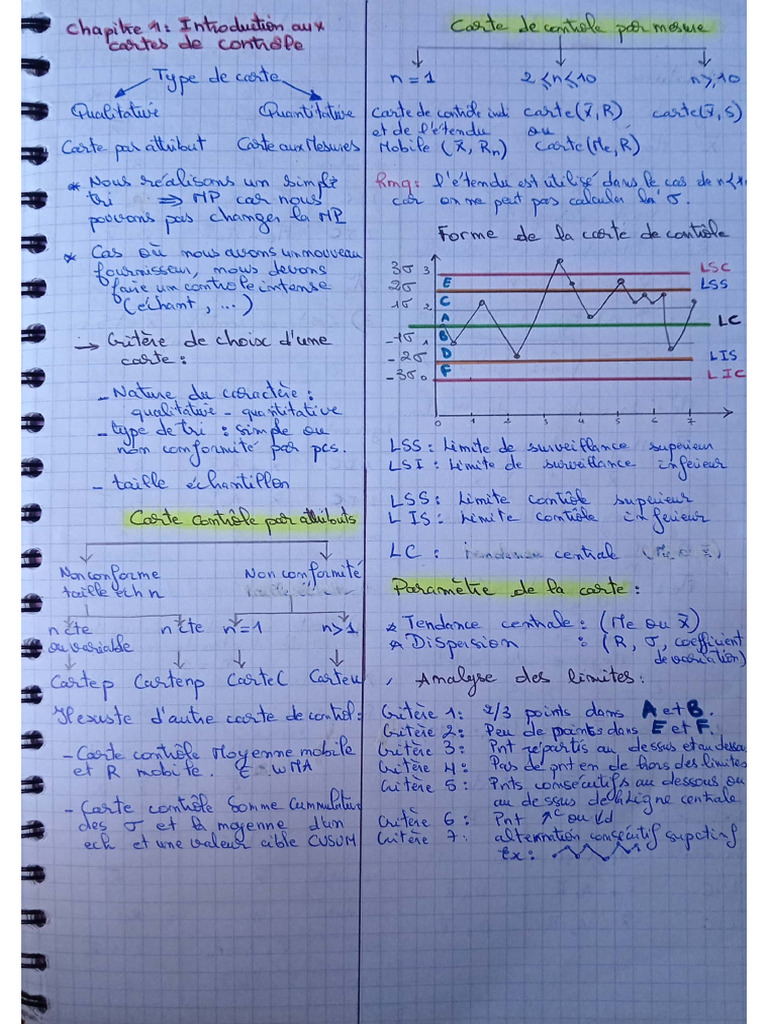 Chapitre 1: Introduction aux
cartes de contrôle
Type de carte
Qualitative Quantitative
Carte par attribut Carte aux Mesures
* Nous réalisons un simple
tri ⇒ MP car nous
pouvons pas changer la MP
* Cas où nous avons un nouveau
fournisseur, nous devons
faire un contrôle intense
(échant, ...)
→ Critère de choix d'une
carte:
- Nature du caractère:
qualitative - quantitative
- type de tri: simple ou
non conformité par pcs.
- taille échantillon
Carte contrôle par attributs
Non conforme Non conformité
taille éch n
n cte n cte n=1 n>1
ou variable
Carte p Carte np Carte C Carte u
Il existe d'autre carte de control:
- Carte contrôle Moyenne mobile
et R mobile. E WMA
- Carte contrôle Somme Cummulative
des σ et la moyenne d'un
ech et une valeur cible CUSUM
Carte de contrôle par mesure
n=1 2≤n≤10 n≥10
Carte de contrôle indi carte(x̄,R) carte(x̄,S)
et de l'étendu ou
Mobile (x̄, Rn) carte(Me,R)
Rmq: l'étendu est utilisé dans le cas de n<1
car on ne peut pas calculer la σ.
Forme de la carte de contrôle
3σ 3 LSC
2σ E LSS
1σ 2 C
A LC
-1σ 1 B
-2σ D LIS
-3σ 0 F LIC
0 1 2 3 4 5 6 7
LSS: Limite de surveillance superieur
LSI: Limite de surveillance inferieur
LSS: Limite contrôle superieur
LIS: Limite contrôle inferieur
LC: tendance centrale (Me ou x̄)
Paramètre de la carte:
* Tendance centrale: (Me ou x̄)
* Dispersion : (R, σ, coefficient
de variation)
Analyse des limites:
Critère 1: 2/3 points dans A et B.
Critère 2: Peu de points dans E et F.
Critère 3: Pnt répartis au dessus et au dessou
Critère 4: Pas de pnt en de hors des limites
Critère 5: Pnts consécutifs au dessous ou
au dessus de la ligne centrale
Critère 6: Pnt ↑c ou ↓d
Critère 7: alternation consécutif
Ex: